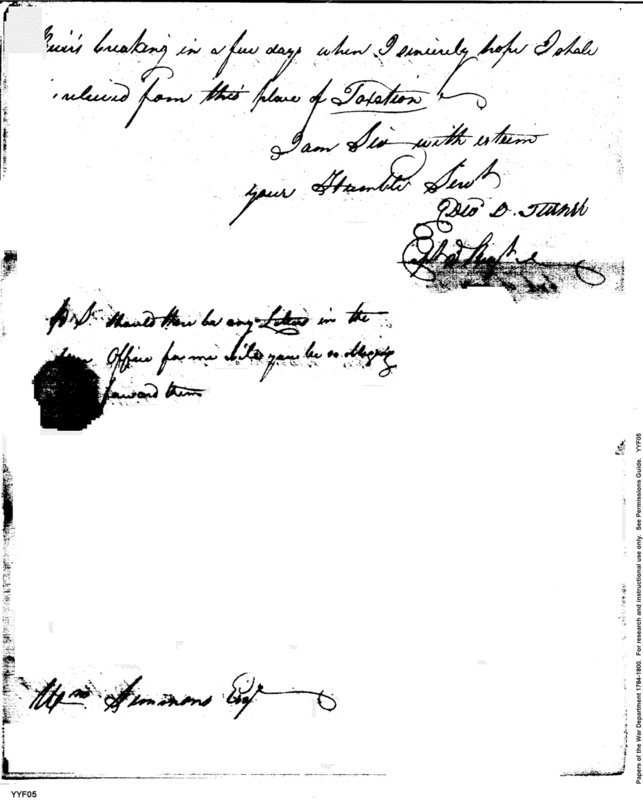 breaking in a few days when I sincerely hope I shale
relieved from this place of Taxation
I am Sir with esteem
your Humble Servt
Geo D. Turner
P S. should there be any Letters in the
Office for me will you be so obliging
forward them
Wm Simmons Esqr
Papers of the War Department 1784-1800. For research and instructional use only. See Permissions Guide. YYF05
YYF05